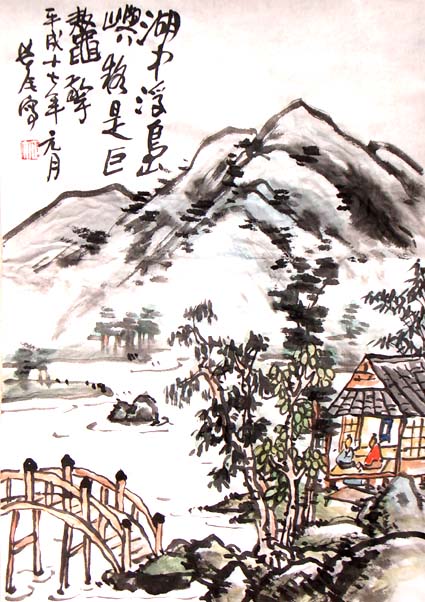 湖中浮島
嶼疑是巨
鼇擎
平成十七年元月